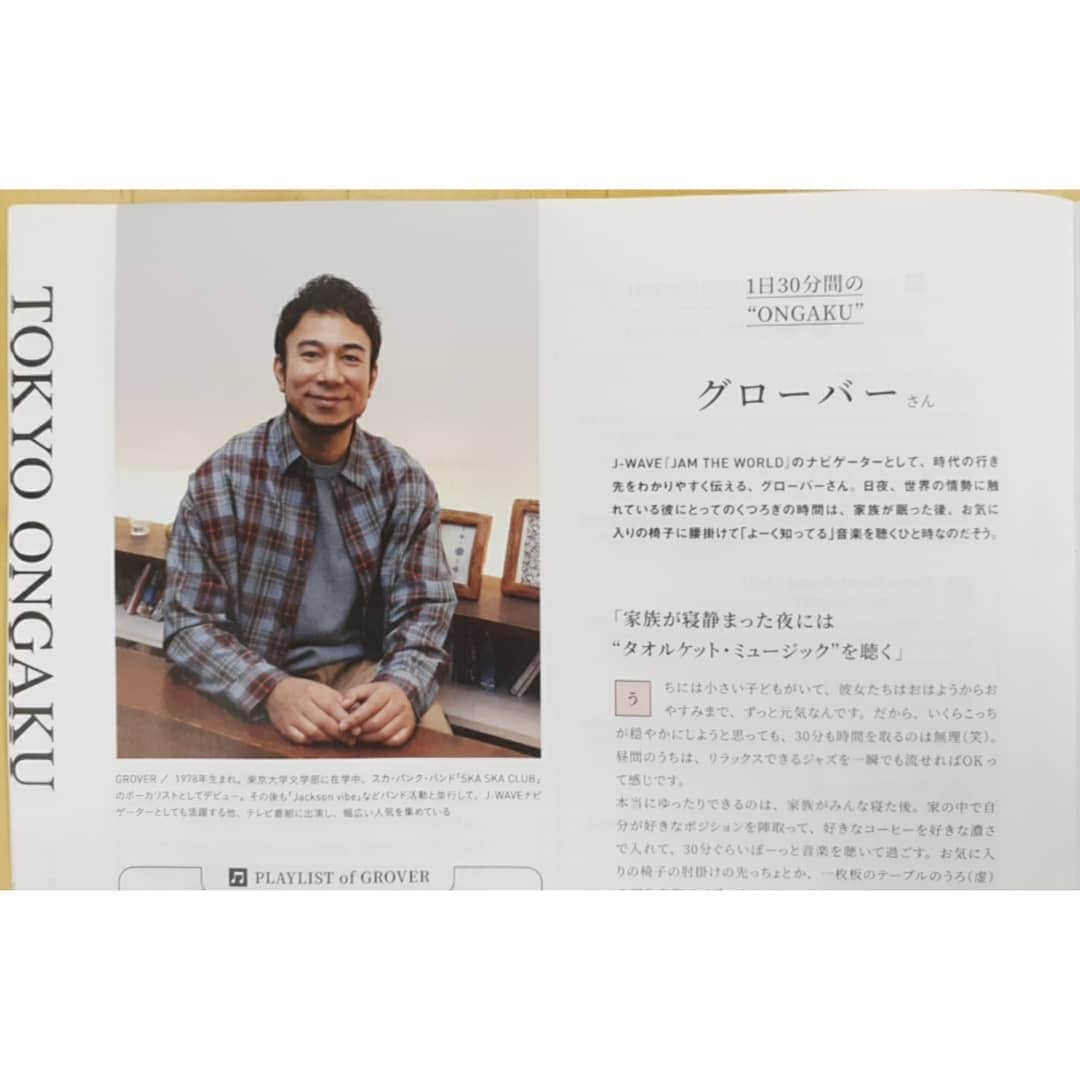 TOKYO ONGAKU
1日30分間の
“ONGAKU”
グローバーさん
J-WAVE「JAM THE WORLD」のナビゲーターとして、時代の行き
先をわかりやすく伝える、グローバーさん。日夜、世界の情勢に触
れている彼にとってのくつろぎの時間は、家族が眠った後、お気に
入りの椅子に腰掛けて「よーく知ってる」音楽を聴くひと時なのだそう。
「家族が寝静まった夜には
“タオルケット・ミュージック”を聴く」
うちには小さい子どもがいて、彼女たちはおはようからお
やすみまで、ずっと元気なんです。だから、いくらこっち
が穏やかにしようと思っても、30分も時間を取るのは無理（笑）。
昼間のうちは、リラックスできるジャズを一瞬でも流せればOKっ
て感じです。
本当にゆったりできるのは、家族がみんな寝た後。家の中で自
分が好きなポジションを陣取って、好きなコーヒーを好きな濃さ
で入れて、30分ぐらいぼーっと音楽を聴いて過ごす。お気に入
りの椅子の肘掛けの先っちょとか、一枚板のテーブルのうろ（虚）
GROVER / 1978年生まれ。東京大学文学部に在学中、スカ・パンク・バンド「SKA SKA CLUB」
のボーカリストとしてデビュー。その後も「Jackson vibe」などバンド活動と並行して、J-WAVEナビ
ゲーターとしても活躍する他、テレビ番組に出演し、幅広い人気を集めている
PLAYLIST of GROVER